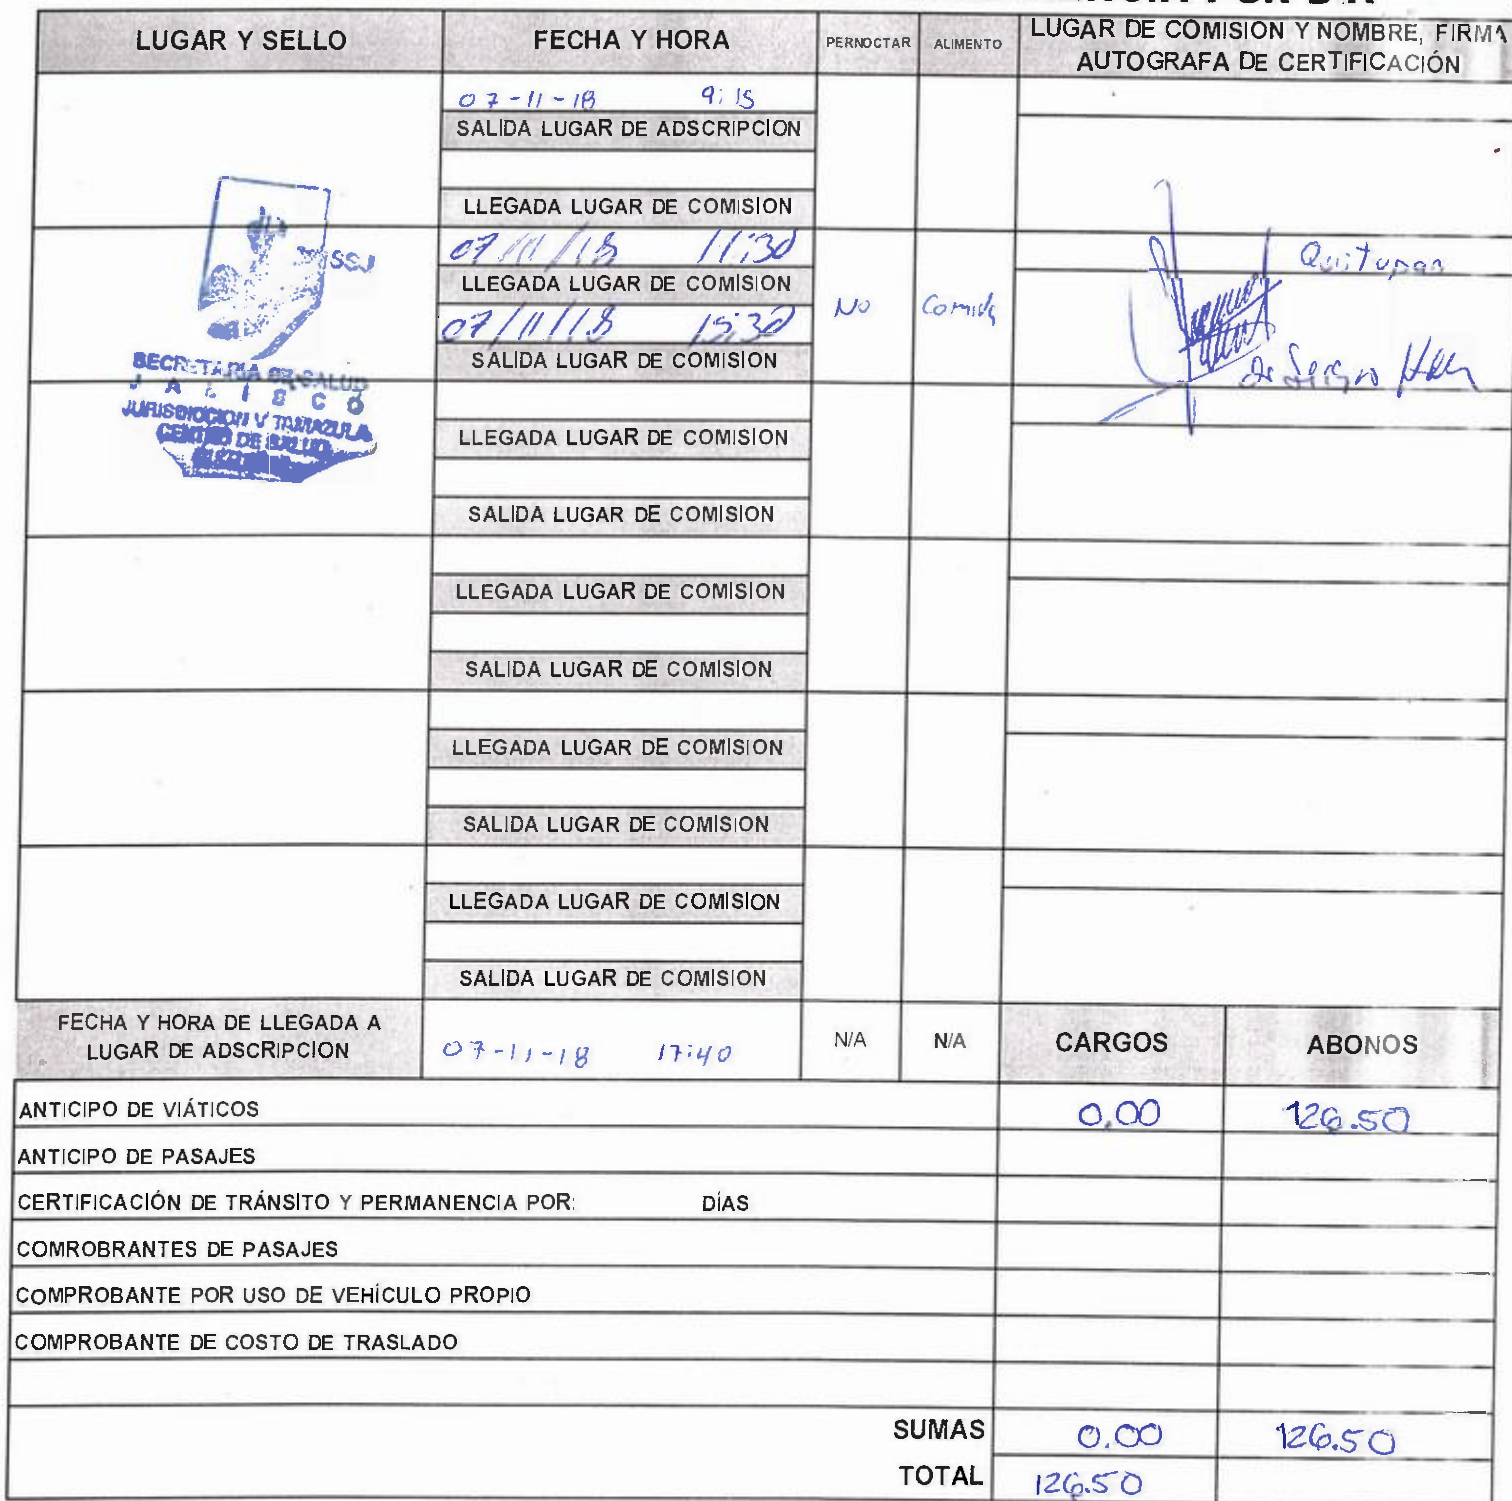 LUGAR Y SELLO
FECHA Y HORA
PERNOCTAR
ALIMENTO
LUGAR DE COMISION Y NOMBRE, FIRMA
AUTOGRAFA DE CERTIFICACIÓN
07-11-18 9:15
SALIDA LUGAR DE ADSCRIPCION
LLEGADA LUGAR DE COMISION
07/11/18 11:30
LLEGADA LUGAR DE COMISION
07/11/18 15:30
SALIDA LUGAR DE COMISION
No
Comida
Quitupan
SSJ
SECRETARIA DE SALUD
JALISCO
JURISDICCION V TAMAZULA
CENTRO DE SALUD
Dr Sergio
LLEGADA LUGAR DE COMISION
SALIDA LUGAR DE COMISION
LLEGADA LUGAR DE COMISION
SALIDA LUGAR DE COMISION
LLEGADA LUGAR DE COMISION
SALIDA LUGAR DE COMISION
LLEGADA LUGAR DE COMISION
SALIDA LUGAR DE COMISION
FECHA Y HORA DE LLEGADA A
LUGAR DE ADSCRIPCION
07-11-18 17:40
N/A
N/A
CARGOS
ABONOS
ANTICIPO DE VIÁTICOS 0.00 126.50
ANTICIPO DE PASAJES
CERTIFICACIÓN DE TRÁNSITO Y PERMANENCIA POR: DÍAS
COMROBRANTES DE PASAJES
COMPROBANTE POR USO DE VEHÍCULO PROPIO
COMPROBANTE DE COSTO DE TRASLADO
SUMAS 0.00 126.50
TOTAL 126.50